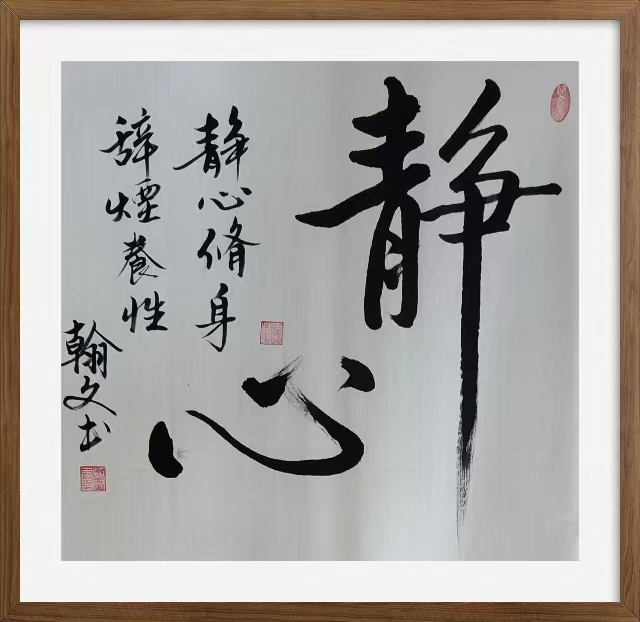 静心
静心脩身
辞煙養性
翰文书